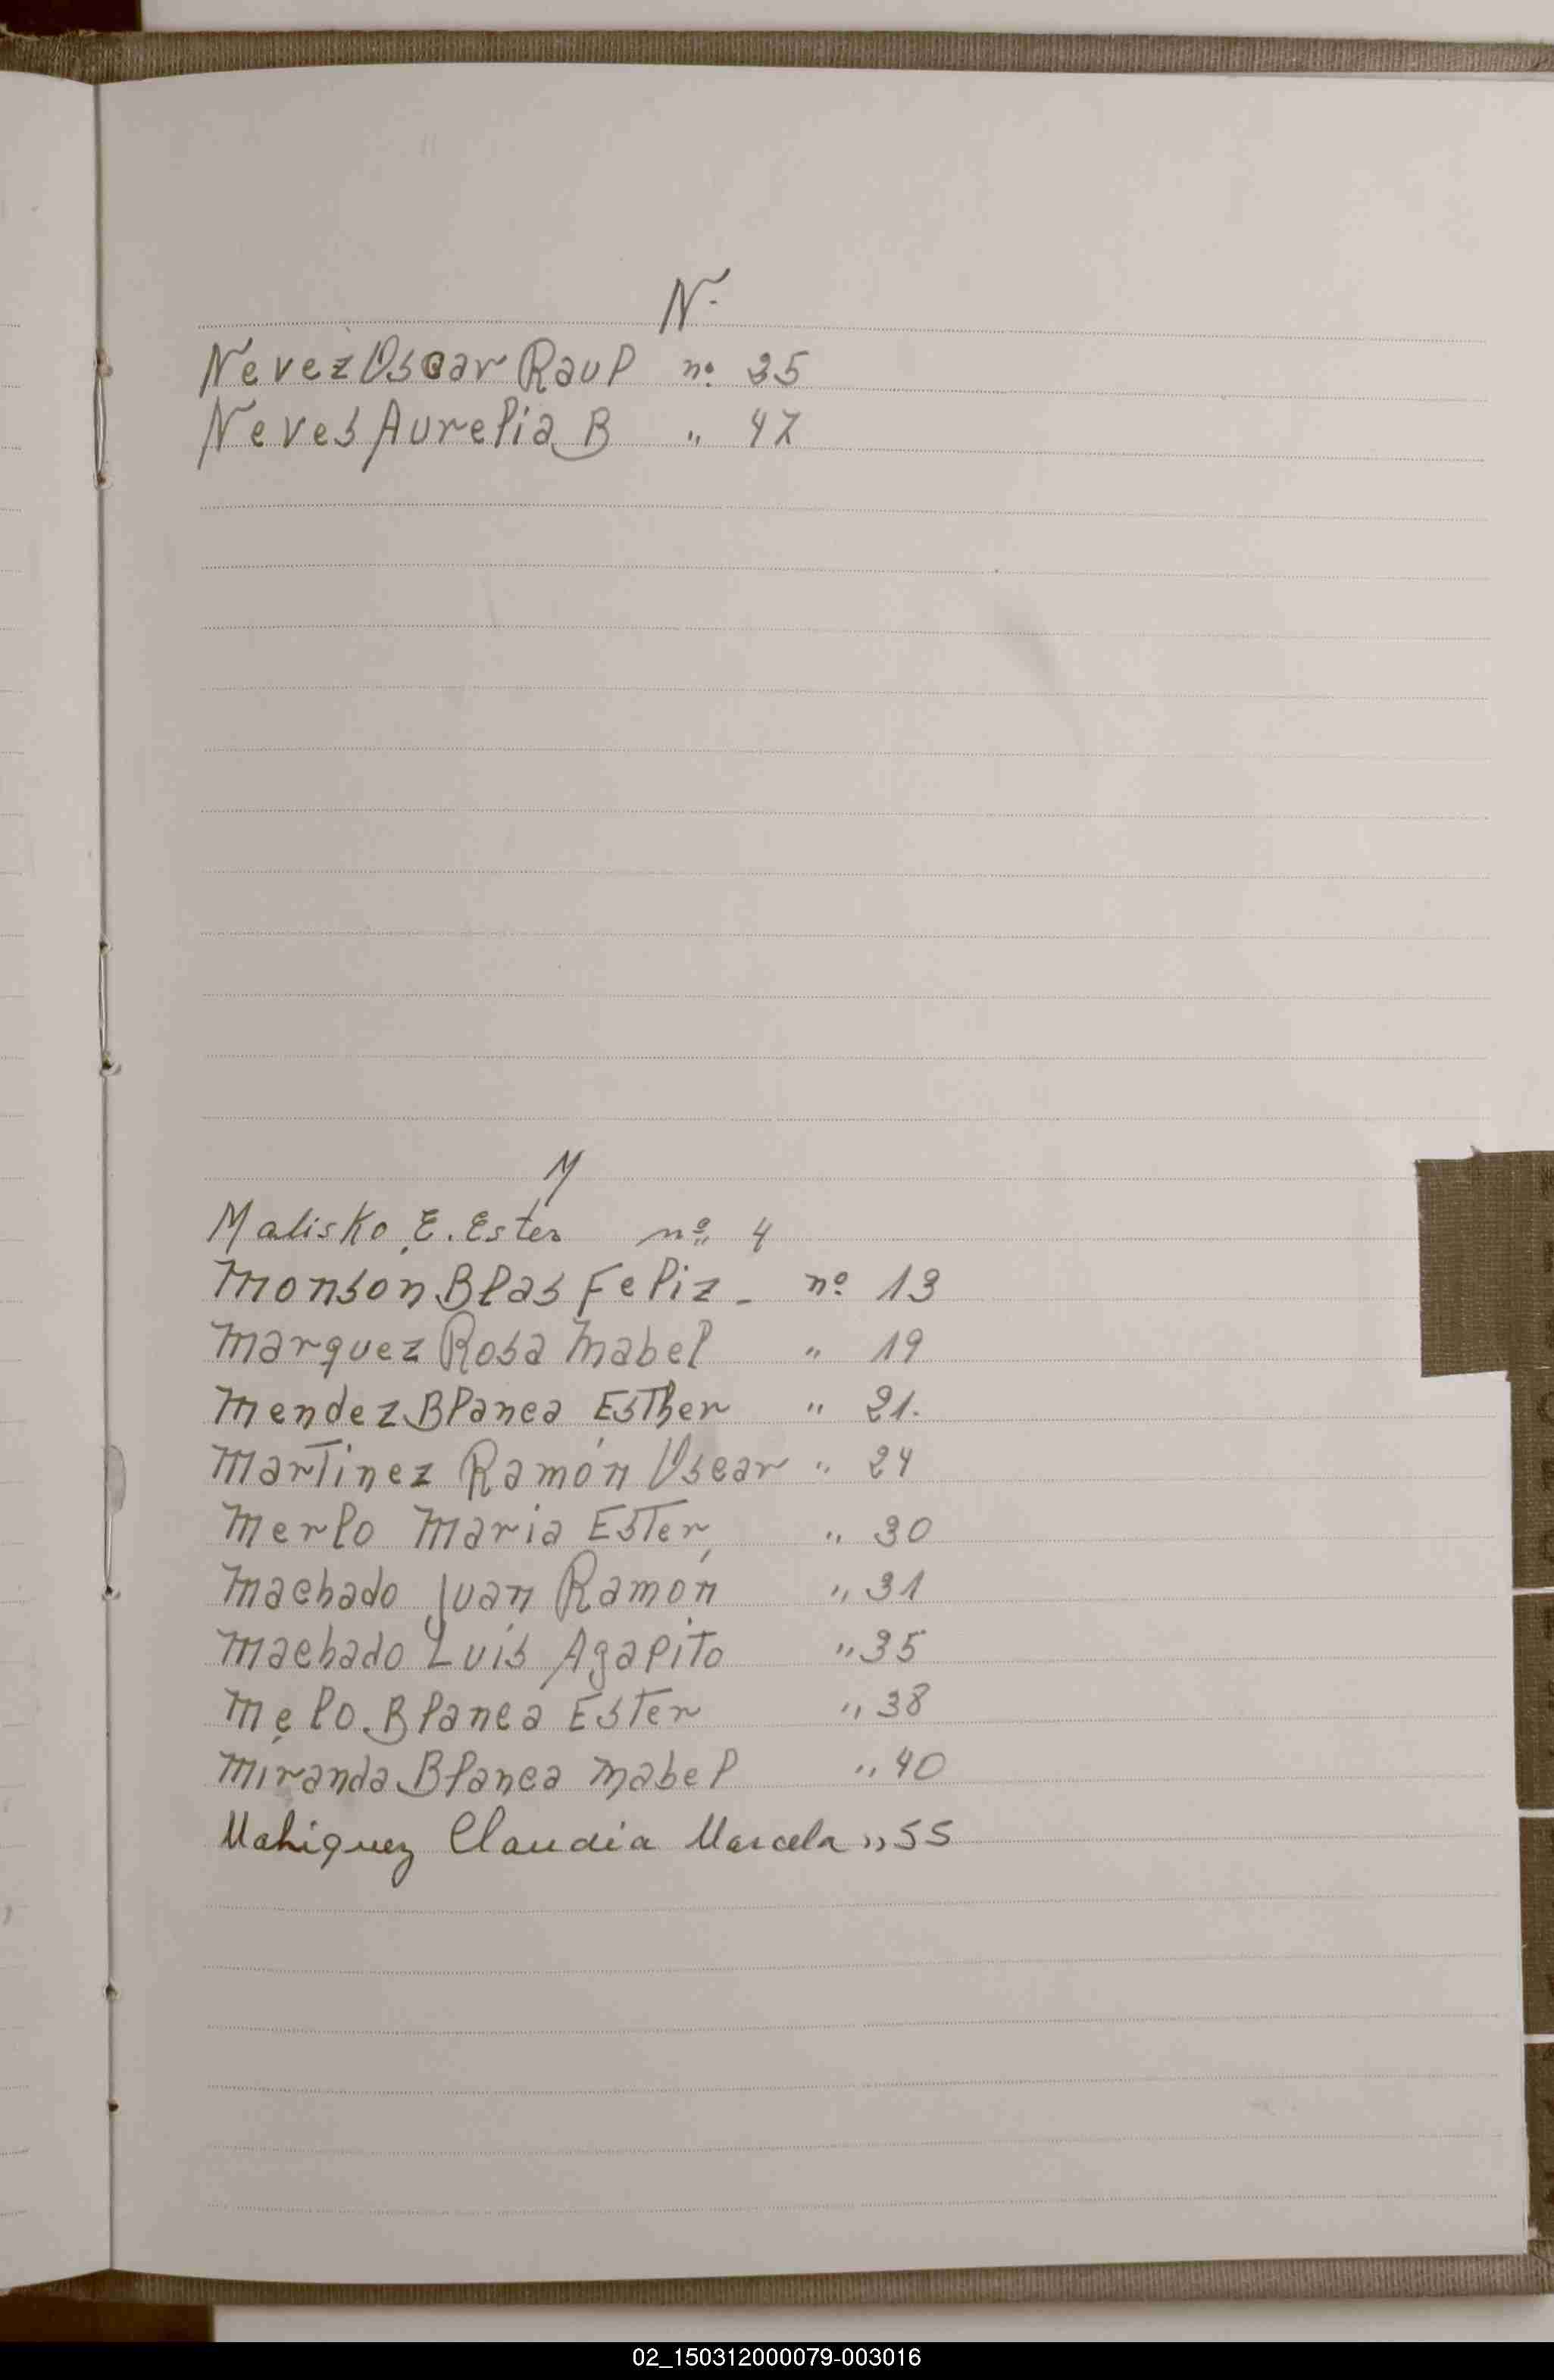 N.
Nevez Oscar Raul nº 35
Neves Aurelia B " 47
M
Malisko E. Ester nº 4
Monson Blas Feliz - nº 13
Marquez Rosa Mabel " 19
Mendez Blanca Esther " 21.
Martinez Ramón Oscar " 24
Merlo Maria Ester, " 30
Machado Juan Ramón " 31
Machado Luis Agapito " 35
Melo Blanca Ester " 38
Miranda Blanca Mabel " 40
Mahiquez Claudia Marcela " 55
02_150312000079-003016